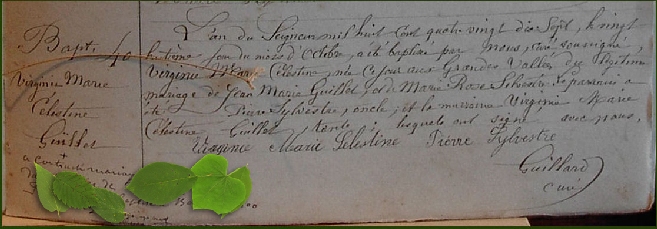 Bapt. 40
Virginie Marie
Célestine
Guillet
a contracté mariage
L'an du Seigneur mil huit cent quatre vingt dix sept, le vingt
huitième jour du mois d'Octobre, a été baptisée par Nous, curé soussigné,
Virginie Marie Célestine, née ce jour aux Grandes Vallées du légitime
mariage de Jean Marie Guillet, et de Marie Rose Sylvestre. Le parrain a
été Pierre Sylvestre, oncle, et la marraine Virginie Marie
Célestine Guillet, tante, lesquels ont signé avec nous,
Virginie Marie Célestine Pierre Sylvestre
Guillard
curé